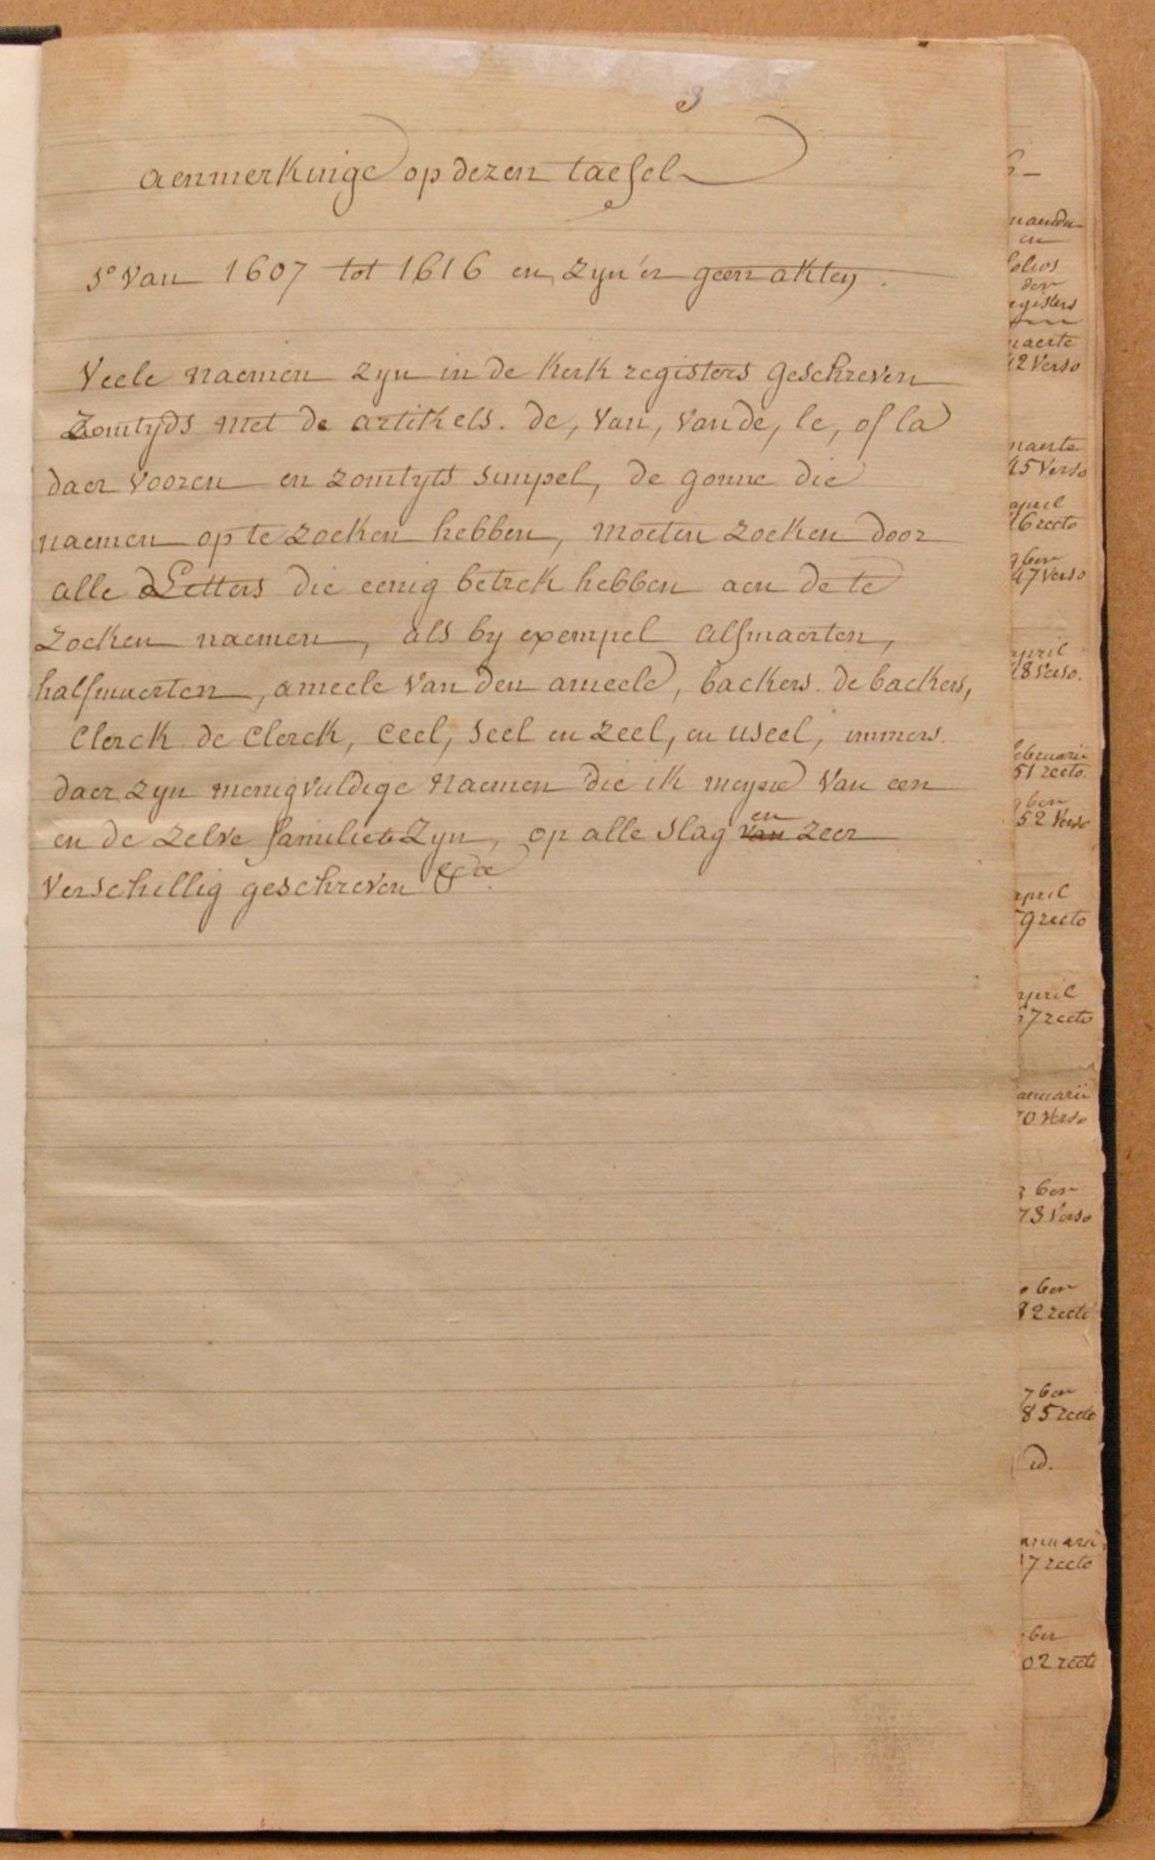 3
aenmerkinge op dezen taefel
s° van 1607 tot 1616 en zyn 'er geen akten.
Veele naemen zyn in de kerk registers geschreven
Zomtyds met de artikels. de, van, vande, le, of la
daer vooren en zomtyts simpel, de gonne die
naemen op te zoeken hebben, moeten zoeken door
alle Letters die eenig betrek hebben aen de te
zoeken naemen, als by exempel alfmaerten,
halfmaerten, ameele van den ameele, backers. de backers,
Clerck de Clerck, Ceel, seel en zeel, en useel, immers
daer zyn menigvuldige naemen die ik meyne van een
en de zelve familie zyn, op alle slag van en zeer
verschillig geschreven &de.
folios
der
registers
maerte
42 verso
maerte
45 verso
april
46 recto
9ber
47 verso
april
48 verso.
februarii
51 recto
9ber
52 verso
april
59 recto
april
67 recto
januarii
70 verso
ber
73 verso
ber
82 recto
7ber
85 recto
id.
januarii
17 recto
ber
02 recto